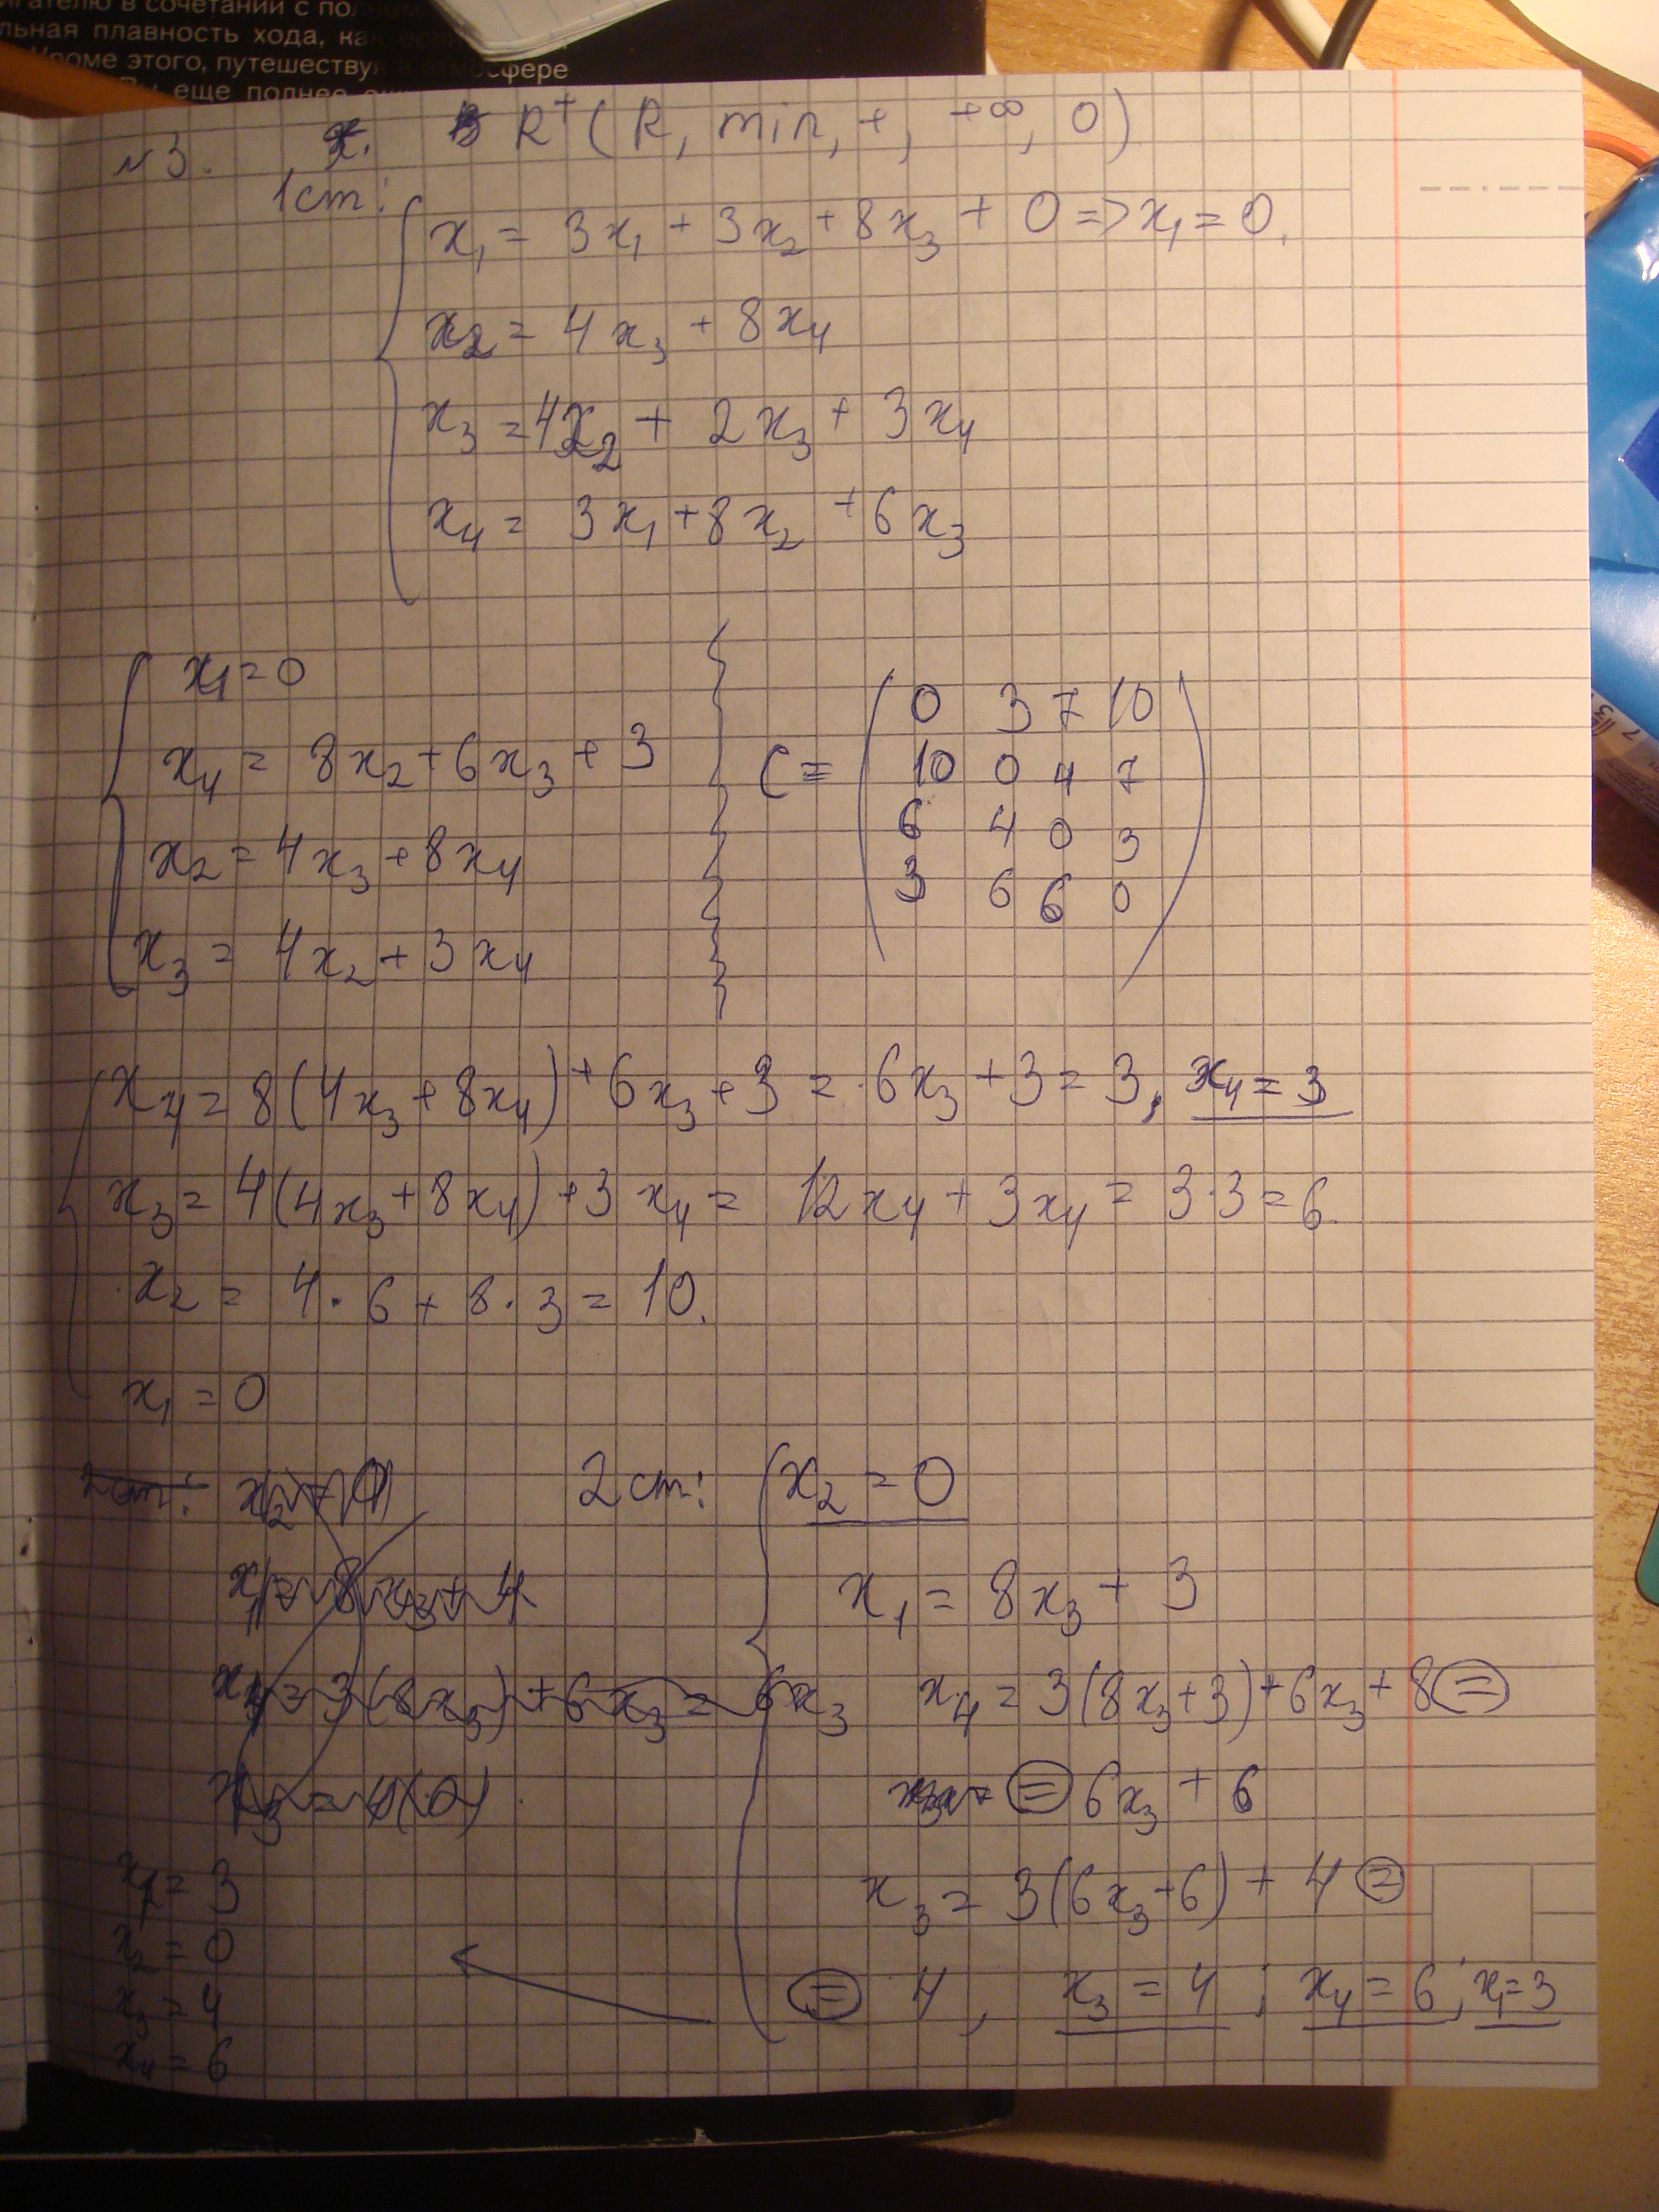 игателю в сочетании с пол
льная плавность хода, как если
Кроме этого, путешествуя в атмосфере
еще полнее
№3. В R⁺ (R, min, +, +∞, 0)
1 ст:
x₁ = 3x₁ + 3x₂ + 8x₃ + 0 => x₁ = 0.
x₂ = 4x₃ + 8x₄
x₃ = 4x₂ + 2x₃ + 3x₄
x₄ = 3x₁ + 8x₂ + 6x₃
x₁ = 0
x₄ = 8x₂ + 6x₃ + 3
x₂ = 4x₃ + 8x₄
x₃ = 4x₂ + 3x₄
C =
0 3 7 10
10 0 4 7
6 4 0 3
3 6 6 0
x₄ = 8(4x₃ + 8x₄) + 6x₃ + 3 = 6x₃ + 3 = 3, x₄ = 3
x₃ = 4(4x₃ + 8x₄) + 3x₄ = 12x₄ + 3x₄ = 3·3 = 6.
x₂ = 4·6 + 8·3 = 10.
x₁ = 0
2 ст:
x₁ = 8x₃ + 4
x₄ = 3(8x₃) + 6x₃ = 6x₃
2 ст: x₂ = 0
x₁ = 8x₃ + 3
x₄ = 3(8x₃ + 3) + 6x₃ + 8 =
= 6x₃ + 6
x₃ = 3(6x₃ + 6) + 4 =
= 4, x₃ = 4; x₄ = 6; x₁ = 3
x₁ = 3
x₂ = 0
x₃ = 4
x₄ = 6